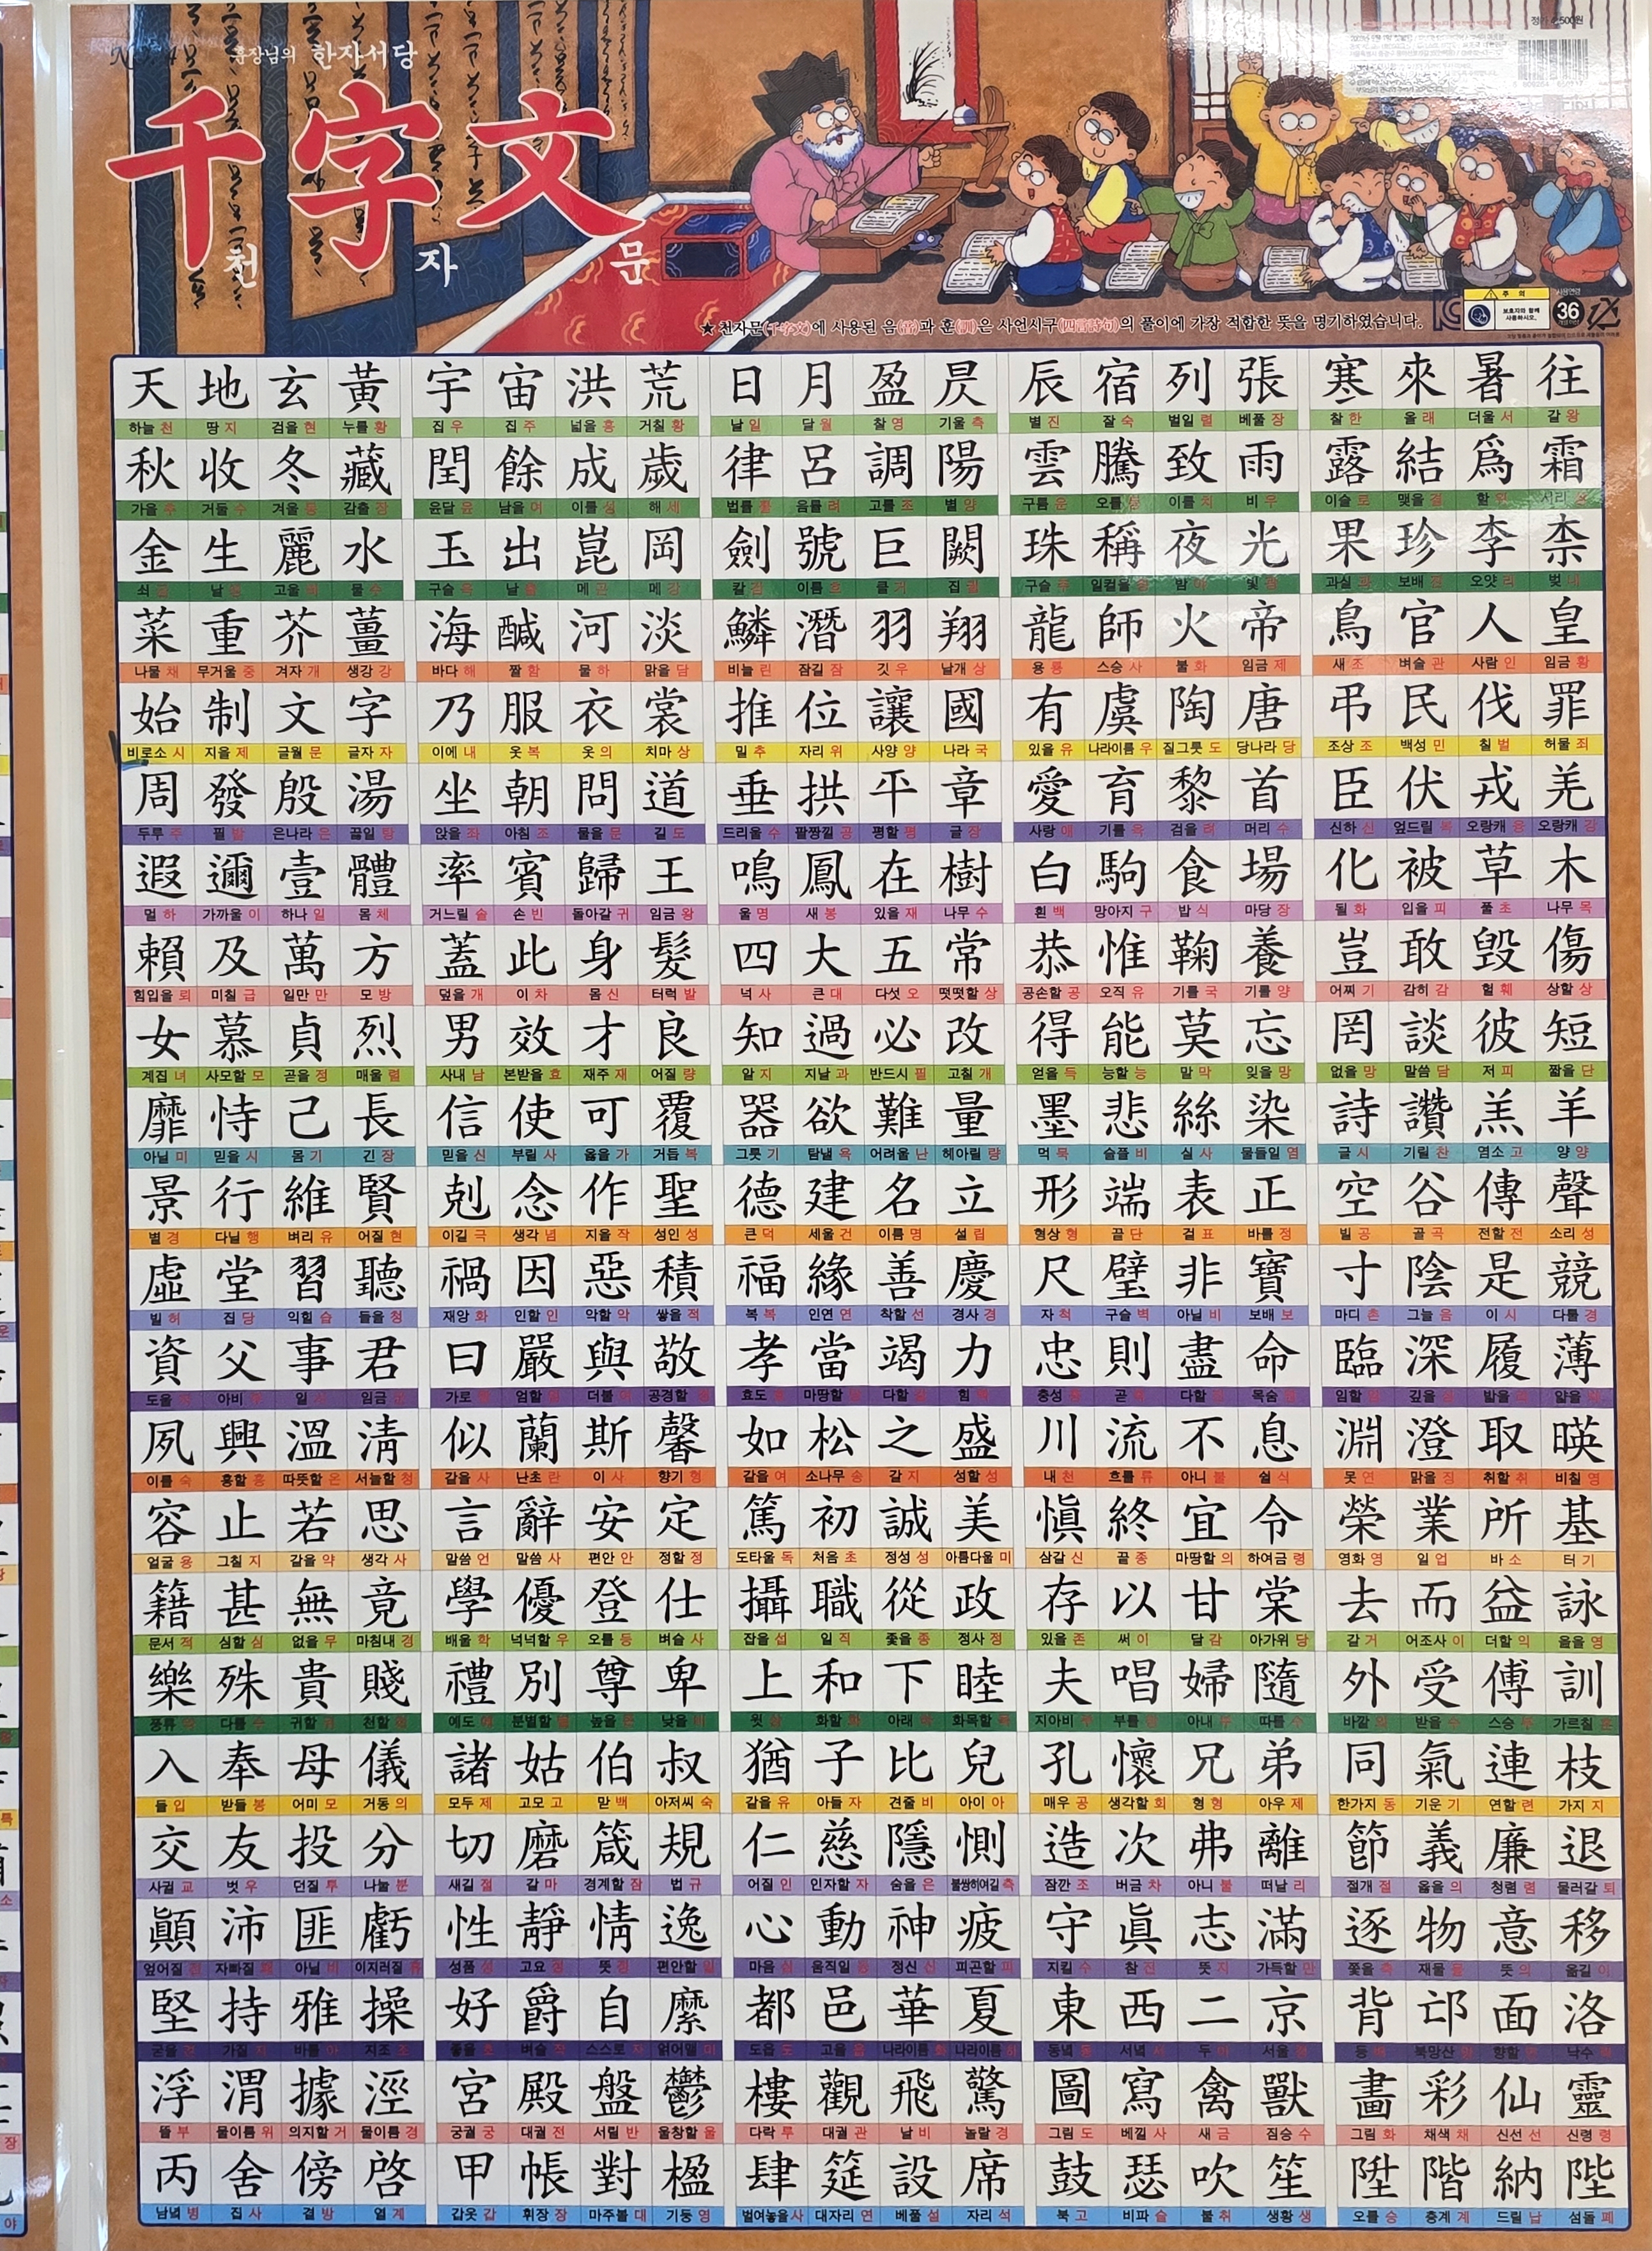 훈장님의 한자서당
정가 4,500원
千字文
천 자 문
주 의
보호자와 함께 사용하시오.
사용연령
36
개월이상
★ 천자문(千字文)에 사용된 음(音)과 훈(訓)은 사언시구(四言詩句)의 풀이에 가장 적합한 뜻을 명기하였습니다.
天 地 玄 黃 宇 宙 洪 荒 日 月 盈 昃 辰 宿 列 張 寒 來 暑 往
하늘 천 땅 지 검을 현 누를 황 집 우 집 주 넓을 홍 거칠 황 날 일 달 월 찰 영 기울 측 별 진 잘 숙 벌일 렬 베풀 장 찰 한 올 래 더울 서 갈 왕
秋 收 冬 藏 閏 餘 成 歲 律 呂 調 陽 雲 騰 致 雨 露 結 爲 霜
가을 추 거둘 수 겨울 동 감출 장 윤달 윤 남을 여 이룰 성 해 세 법률 률 음률 려 고를 조 볕 양 구름 운 오를 등 이를 치 비 우 이슬 로 맺을 결 할 위 서리 상
金 生 麗 水 玉 出 崑 岡 劍 號 巨 闕 珠 稱 夜 光 果 珍 李 柰
쇠 금 날 생 고울 려 물 수 구슬 옥 날 출 메 곤 메 강 칼 검 이름 호 클 거 집 궐 구슬 주 일컬을 칭 밤 야 빛 광 과실 과 보배 진 오얏 리 벚 내
菜 重 芥 薑 海 醎 河 淡 鱗 潛 羽 翔 龍 師 火 帝 鳥 官 人 皇
나물 채 무거울 중 겨자 개 생강 강 바다 해 짤 함 물 하 맑을 담 비늘 린 잠길 잠 깃 우 날개 상 용 룡 스승 사 불 화 임금 제 새 조 벼슬 관 사람 인 임금 황
始 制 文 字 乃 服 衣 裳 推 位 讓 國 有 虞 陶 唐 弔 民 伐 罪
비로소 시 지을 제 글월 문 글자 자 이에 내 옷 복 옷 의 치마 상 밀 추 자리 위 사양 양 나라 국 있을 유 나라이름 우 질그릇 도 당나라 당 조상 조 백성 민 칠 벌 허물 죄
周 發 殷 湯 坐 朝 問 道 垂 拱 平 章 愛 育 黎 首 臣 伏 戎 羌
두루 주 필 발 은나라 은 끓일 탕 앉을 좌 아침 조 물을 문 길 도 드리울 수 팔짱낄 공 평할 평 글 장 사랑 애 기를 육 검을 려 머리 수 신하 신 엎드릴 복 오랑캐 융 오랑캐 강
遐 邇 壹 體 率 賓 歸 王 鳴 鳳 在 樹 白 駒 食 場 化 被 草 木
멀 하 가까울 이 하나 일 몸 체 거느릴 솔 손 빈 돌아갈 귀 임금 왕 울 명 새 봉 있을 재 나무 수 흰 백 망아지 구 밥 식 마당 장 될 화 입을 피 풀 초 나무 목
賴 及 萬 方 蓋 此 身 髮 四 大 五 常 恭 惟 鞠 養 豈 敢 毁 傷
힘입을 뢰 미칠 급 일만 만 모 방 덮을 개 이 차 몸 신 터럭 발 넉 사 큰 대 다섯 오 떳떳할 상 공손할 공 오직 유 기를 국 기를 양 어찌 기 감히 감 헐 훼 상할 상
女 慕 貞 烈 男 效 才 良 知 過 必 改 得 能 莫 忘 罔 談 彼 短
계집 녀 사모할 모 곧을 정 매울 렬 사내 남 본받을 효 재주 재 어질 량 알 지 지날 과 반드시 필 고칠 개 얻을 득 능할 능 말 막 잊을 망 없을 망 말씀 담 저 피 짧을 단
靡 恃 己 長 信 使 可 覆 器 欲 難 量 墨 悲 絲 染 詩 讚 羔 羊
아닐 미 믿을 시 몸 기 긴 장 믿을 신 부릴 사 옳을 가 거듭 복 그릇 기 탐낼 욕 어려울 난 헤아릴 량 먹 묵 슬플 비 실 사 물들일 염 글 시 기릴 찬 염소 고 양 양
景 行 維 賢 剋 念 作 聖 德 建 名 立 形 端 表 正 空 谷 傳 聲
볕 경 다닐 행 벼리 유 어질 현 이길 극 생각 념 지을 작 성인 성 큰 덕 세울 건 이름 명 설 립 형상 형 끝 단 겉 표 바를 정 빌 공 골 곡 전할 전 소리 성
虛 堂 習 聽 禍 因 惡 積 福 緣 善 慶 尺 璧 非 寶 寸 陰 是 競
빌 허 집 당 익힐 습 들을 청 재앙 화 인할 인 악할 악 쌓을 적 복 복 인연 연 착할 선 경사 경 자 척 구슬 벽 아닐 비 보배 보 마디 촌 그늘 음 이 시 다툴 경
資 父 事 君 曰 嚴 與 敬 孝 當 竭 力 忠 則 盡 命 臨 深 履 薄
도울 자 아비 부 일 사 임금 군 가로 왈 엄할 엄 더불 여 공경할 경 효도 효 마땅할 당 다할 갈 힘 력 충성 충 곧 즉 다할 진 목숨 명 임할 림 깊을 심 밟을 리 얇을 박
夙 興 溫 淸 似 蘭 斯 馨 如 松 之 盛 川 流 不 息 淵 澄 取 暎
이를 숙 흥할 흥 따뜻할 온 서늘할 청 같을 사 난초 란 이 사 향기 형 같을 여 소나무 송 갈 지 성할 성 내 천 흐를 류 아니 불 쉴 식 못 연 맑을 징 취할 취 비칠 영
容 止 若 思 言 辭 安 定 篤 初 誠 美 愼 終 宜 令 榮 業 所 基
얼굴 용 그칠 지 같을 약 생각 사 말씀 언 말씀 사 편안 안 정할 정 도타울 독 처음 초 정성 성 아름다울 미 삼갈 신 끝 종 마땅할 의 하여금 령 영화 영 일 업 바 소 터 기
籍 甚 無 竟 學 優 登 仕 攝 職 從 政 存 以 甘 棠 去 而 益 詠
문서 적 심할 심 없을 무 마침내 경 배울 학 넉넉할 우 오를 등 벼슬 사 잡을 섭 일 직 좇을 종 정사 정 있을 존 써 이 달 감 아가위 당 갈 거 어조사 이 더할 익 읊을 영
樂 殊 貴 賤 禮 別 尊 卑 上 和 下 睦 夫 唱 婦 隨 外 受 傅 訓
풍류 악 다를 수 귀할 귀 천할 천 예도 례 분별할 별 높을 존 낮을 비 윗 상 화할 화 아래 하 화목할 목 지아비 부 부를 창 아내 부 따를 수 바깥 외 받을 수 스승 부 가르칠 훈
入 奉 母 儀 諸 姑 伯 叔 猶 子 比 兒 孔 懷 兄 弟 同 氣 連 枝
들 입 받들 봉 어미 모 거동 의 모두 제 고모 고 맏 백 아저씨 숙 같을 유 아들 자 견줄 비 아이 아 매우 공 생각할 회 형 형 아우 제 한가지 동 기운 기 연할 련 가지 지
交 友 投 分 切 磨 箴 規 仁 慈 隱 惻 造 次 弗 離 節 義 廉 退
사귈 교 벗 우 던질 투 나눌 분 새길 절 갈 마 경계할 잠 법 규 어질 인 인자할 자 숨을 은 불쌍히여길 측 잠깐 조 버금 차 아니 불 떠날 리 절개 절 옳을 의 청렴 렴 물러갈 퇴
顚 沛 匪 虧 性 靜 情 逸 心 動 神 疲 守 眞 志 滿 逐 物 意 移
엎어질 전 자빠질 패 아닐 비 이지러질 휴 성품 성 고요 정 뜻 정 편안할 일 마음 심 움직일 동 정신 신 피곤할 피 지킬 수 참 진 뜻 지 가득할 만 쫓을 축 재물 물 뜻 의 옮길 이
堅 持 雅 操 好 爵 自 縻 都 邑 華 夏 東 西 二 京 背 邙 面 洛
굳을 견 가질 지 바를 아 지조 조 좋을 호 벼슬 작 스스로 자 얽어맬 미 도읍 도 고을 읍 나라이름 화 나라이름 하 동녘 동 서녘 서 두 이 서울 경 등 배 북망산 망 향할 면 낙수 락
浮 渭 據 涇 宮 殿 盤 鬱 樓 觀 飛 驚 圖 寫 禽 獸 畵 彩 仙 靈
뜰 부 물이름 위 의지할 거 물이름 경 궁궐 궁 대궐 전 서릴 반 울창할 울 다락 루 대궐 관 날 비 놀랄 경 그림 도 베낄 사 새 금 짐승 수 그림 화 채색 채 신선 선 신령 령
丙 舍 傍 啓 甲 帳 對 楹 肆 筵 設 席 鼓 瑟 吹 笙 陞 階 納 陛
남녘 병 집 사 곁 방 열 계 갑옷 갑 휘장 장 마주볼 대 기둥 영 벌여놓을 사 대자리 연 베풀 설 자리 석 북 고 비파 슬 불 취 생황 생 오를 승 층계 계 드릴 납 섬돌 폐